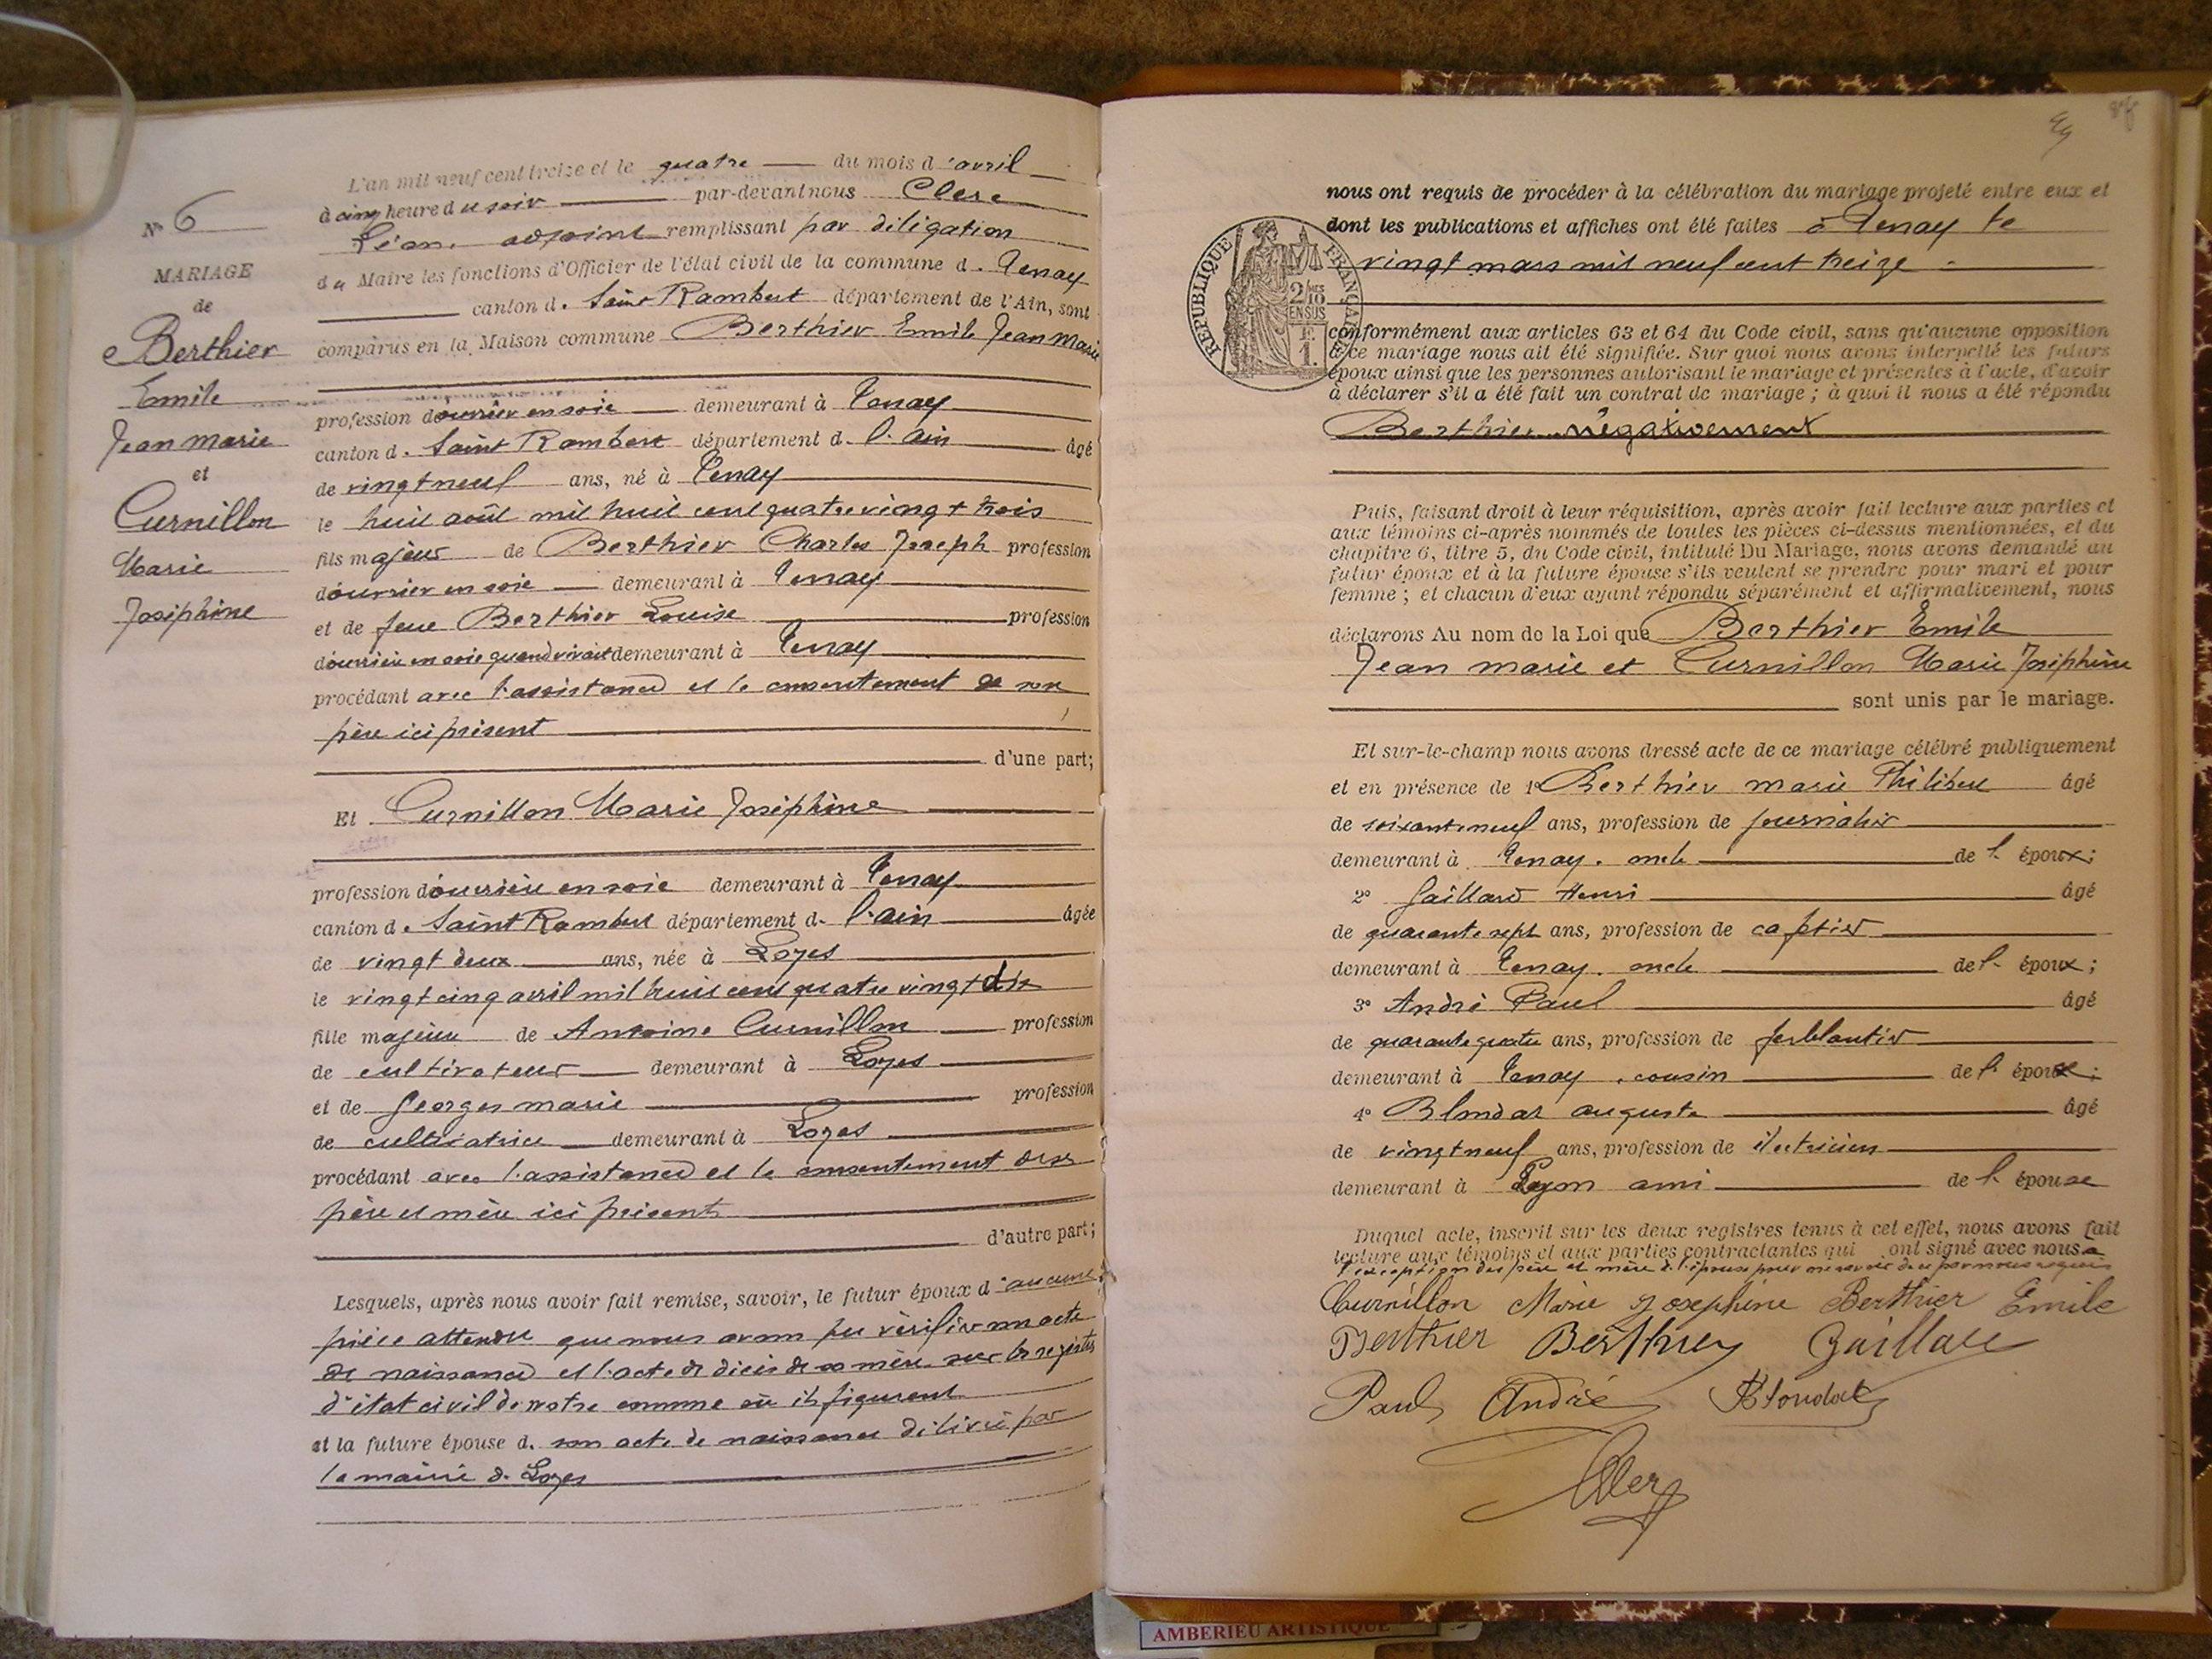 N° 6
MARIAGE
de
Berthier
Emile
Jean marie
et
Curnillon
Marie
Joséphine
L'an mil neuf cent treize et le quatre du mois d'avril
à cinq heure du soir par-devant nous Clerc
Léon adjoint remplissant par déligation
du Maire les fonctions d'Officier de l'état civil de la commune de Tenay
canton de Saint Rambert département de l'Ain, sont
comparus en la Maison commune Berthier Emile Jean Marie
profession d'ouvrier en soie demeurant à Tenay
canton de Saint Rambert département de l'ain âgé
de vingt neuf ans, né à Tenay
le huit août mil huit cent quatre vingt trois
fils majeur de Berthier Charles Joseph profession
d'ouvrier en soie demeurant à Tenay
et de feue Berthier Louise profession
d'ouvrière en soie quand vivait demeurant à Tenay
procédant avec l'assistance et le consentement de son
père ici présent
d'une part;
Et Curnillon Marie Joséphine
profession d'ouvrière en soie demeurant à Tenay
canton de Saint Rambert département de l'ain âgée
de vingt deux ans, née à Loyes
le vingt cinq avril mil huit cent quatre vingt dix
fille majeure de Antoine Curnillon profession
de cultivateur demeurant à Loyes
et de Georges marie profession
de cultivatrice demeurant à Loyes
procédant avec l'assistance et le consentement de ses
père et mère ici présents
d'autre part;
Lesquels, après nous avoir fait remise, savoir, le futur époux d'aucune
pièce attendu que nous avons pu vérifier son acte
de naissance et l'acte de décès de sa mère sur les registres
d'état civil de notre commune où ils figurent
et la future épouse de son acte de naissance délivré par
la mairie de Loyes
49
nous ont requis de procéder à la célébration du mariage projeté entre eux et
dont les publications et affiches ont été faites à Tenay le
vingt mars mil neuf cent treize
RÉPUBLIQUE FRANÇAISE
2/10 EN SUS
1 F.
conformément aux articles 63 et 64 du Code civil, sans qu'aucune opposition
à ce mariage nous ait été signifiée. Sur quoi nous avons interpellé les futurs
époux ainsi que les personnes autorisant le mariage et présentes à l'acte, d'avoir
à déclarer s'il a été fait un contrat de mariage ; à quoi il nous a été répondu
Berthier négativement
Puis, faisant droit à leur réquisition, après avoir fait lecture aux parties et
aux témoins ci-après nommés de toutes les pièces ci-dessus mentionnées, et du
chapitre 6, titre 5, du Code civil, intitulé Du Mariage, nous avons demandé au
futur époux et à la future épouse s'ils veulent se prendre pour mari et pour
femme ; et chacun d'eux ayant répondu séparément et affirmativement, nous
déclarons Au nom de la Loi que Berthier Emile
Jean marie et Curnillon Marie Joséphine
sont unis par le mariage.
Et sur-le-champ nous avons dressé acte de ce mariage célébré publiquement
et en présence de 1° Berthier marie Philibert âgé
de soixante neuf ans, profession de journalier
demeurant à Tenay. oncle de l'époux;
2° Gaillard Henri âgé
de quarante sept ans, profession de
demeurant à Tenay. oncle de l'époux;
3° André Paul âgé
de quarante quatre ans, profession de ferblantier
demeurant à Tenay, cousin de l'époux;
4° Blondat auguste âgé
de vingt neuf ans, profession de électricien
demeurant à Lyon ami de l'épouse
Duquel acte, inscrit sur les deux registres tenus à cet effet, nous avons fait
lecture aux témoins et aux parties contractantes qui ont signé avec nous à
l'exception des père et mère de l'épouse pour ne savoir de ce par nous requis
Curnillon Marie Josephine Berthier Emile
Berthier Berthier Gaillard
Paul André Blondat
Clerc
AMBERIEU ARTISTIQUE